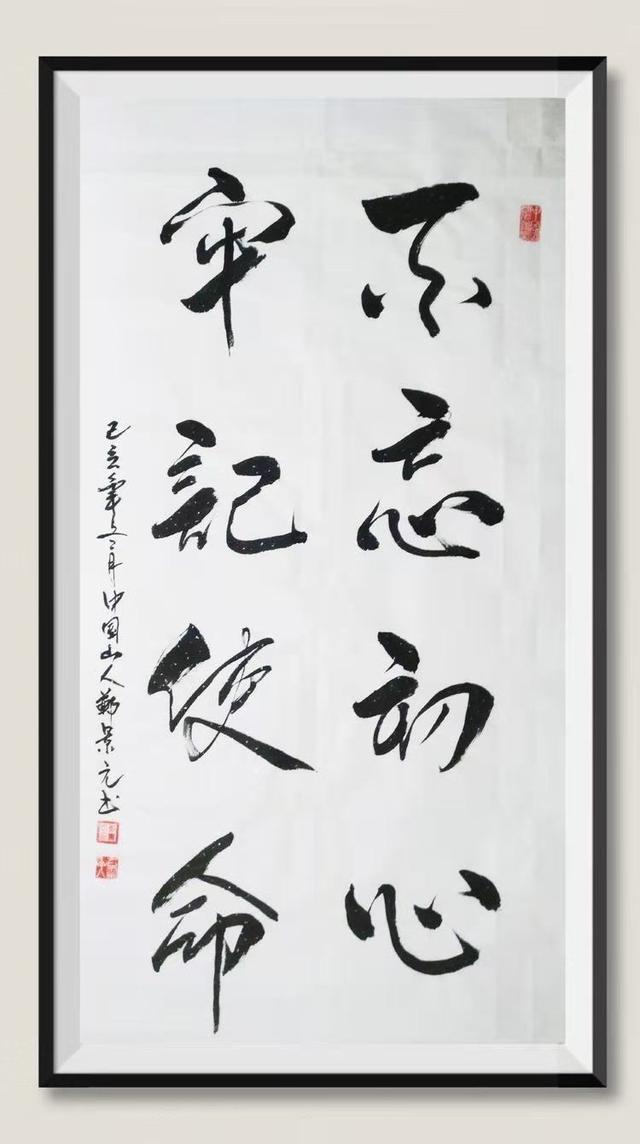 不忘初心
牢記使命
己亥年月中国山人景元书